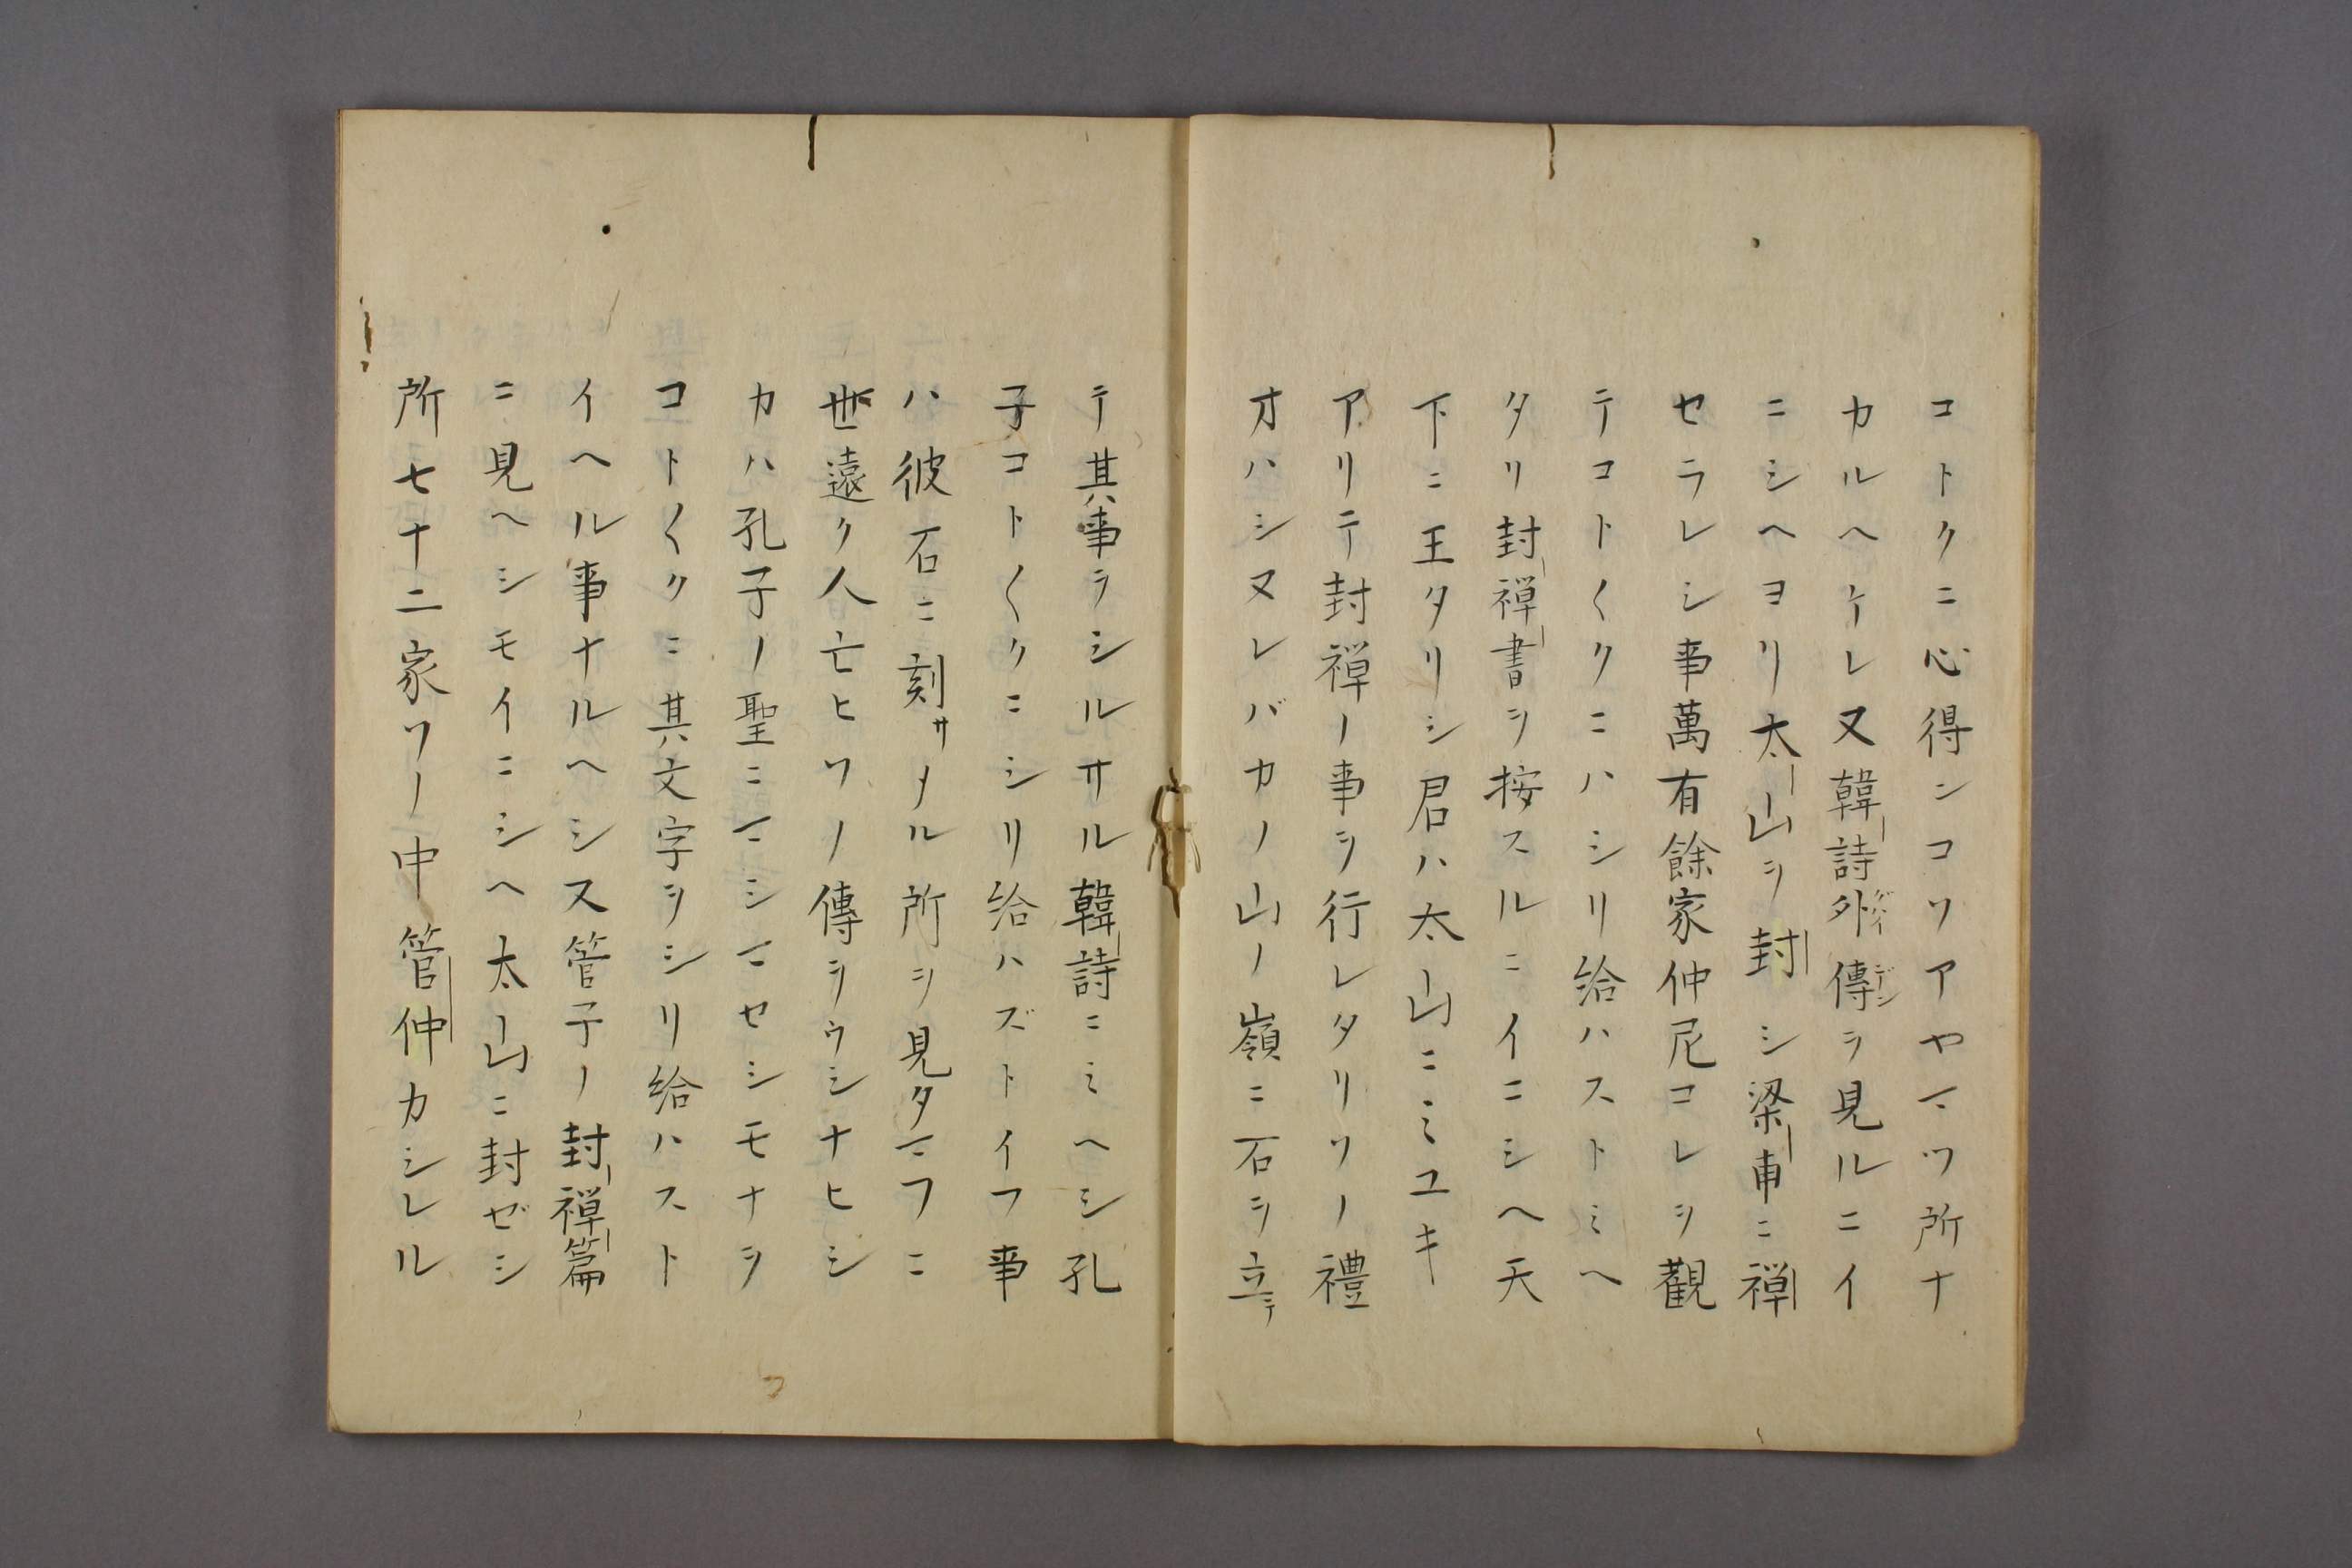 コトクニ心得ンコソアヤマツ所ナ
カルヘケレ又韓詩外傳ヲ見ルニイ
ニシヘヨリ太山ヲ封シ梁甫ニ禅
セラレシ事萬有餘家仲尼コレヲ觀
テコト〱クニハシリ給ハストミヘ
タリ封禅書ヲ按スルニイニシヘ天
下ニ王タリシ君ハ太山ニミユキ
アリテ封禅ノ事ヲ行レタリソノ禮
オハシヌレバカノ山ノ嶺ニ石ヲ立テ
テ其事ヲシルサル韓詩ニミヘシ孔
子コト〱クニシリ給ハズトイフ事
ハ彼石ニ刻サメル所ヲ見タマフニ
世遠ク人亡ヒソノ傳ヲウシナヒシ
カハ孔子ノ聖ニマシマセシモナヲ
コト〱クニ其文字ヲシリ給ハスト
イヘル事ナルヘシ又管子ノ封禅篇
ニ見ヘシモイニシヘ太山ニ封ゼシ
所七十二家ソノ中管仲カシレル